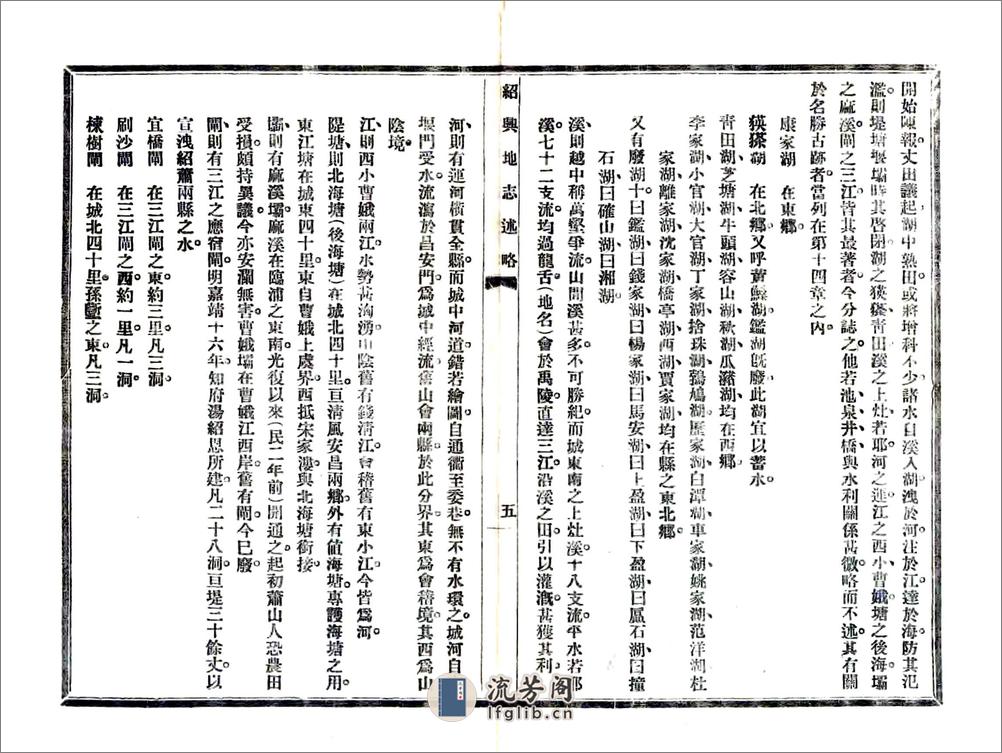 開始陳報丈田議起湖中熟田或將增科不少諸水自溪入湖洩於河注於江達於海防其氾
濫則堤塘堰壩時其啓閉湖之㹰𤠊青田溪之上灶若耶河之進江之西小曹娥塘之後海壩
之麻溪閘之三江皆其最著者今分誌之他若池泉井橋與水利關係甚微略而不述其有關
於名勝古跡者當列在第十四章之內
康家湖　在東鄉
㹰𤠊湖　在北鄉又呼黃䱜湖鑑湖旣廢此湖宜以蓄水
靑田湖芝塘湖牛頭湖容山湖秋湖瓜瀦湖均在西鄉
李家湖小官湖大官湖丁家湖捨珠湖鵓鳩湖歷家湖白潭湖車家湖姚家湖范洋湖杜
家湖離家湖沈家湖橋亭湖西湖賈家湖均在縣之東北鄉
又有廢湖十曰鑑湖曰錢家湖曰楊家湖曰馬安湖曰上盈湖曰下盈湖曰匾石湖曰撞
石湖曰確山湖曰湘湖
溪則越中稱萬壑爭流山間溪甚多不可勝紀而城東南之上灶溪十八支流平水若耶
溪七十二支流均過龍舌(地名)會於禹陵直達三江沿溪之田引以灌漑甚獲其利
紹興地志述略
五
河則有運河橫貫全縣而城中河道錯若繪圖自通衢至委巷無不有水環之城河自
堰門受水流瀉於昌安門爲城中經流舊山會兩縣於此分界其東爲會稽境其西爲山
陰境
江則西小曹娥兩江水勢甚洶湧山陰舊有錢清江會稽舊有東小江今皆爲河
隄塘則北海塘(後海塘)在城北四十里亘清風安昌兩鄉外有値海塘專護海塘之用
東江塘在城東四十里東自曹娥上虞界西抵宋家漊與北海塘銜接
壩則有麻溪壩麻溪在臨浦之東南光復以來(民二年前)開通之起初蕭山人恐農田
受損頗持異議今亦安瀾無害曹娥壩在曹娥江西岸舊有閘今已廢
閘則有三江之應宿閘明嘉靖十六年知府湯紹恩所建凡二十八洞亘堤三十餘丈以
宣洩紹蕭兩縣之水
宜橋閘　在三江閘之東約三里凡三洞
刷沙閘　在三江閘之西約一里凡一洞
楝樹閘　在城北四十里孫𡐊之東凡三洞
流芳阁
lfglib.cn